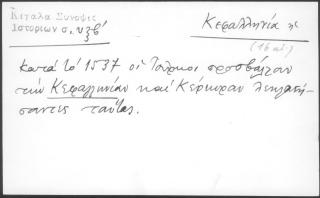 Κιγάλα Σύνοψις
Ιστοριών σ. υξβ'
Κεφαλληνία
(16 αἰ.)
Κατά τό 1537 οἱ Τοῦρκοι προσβάλλουν
τήν Κεφαλληνίαν καί Κέρκυραν λεηλατή-
σαντες ταύτας.